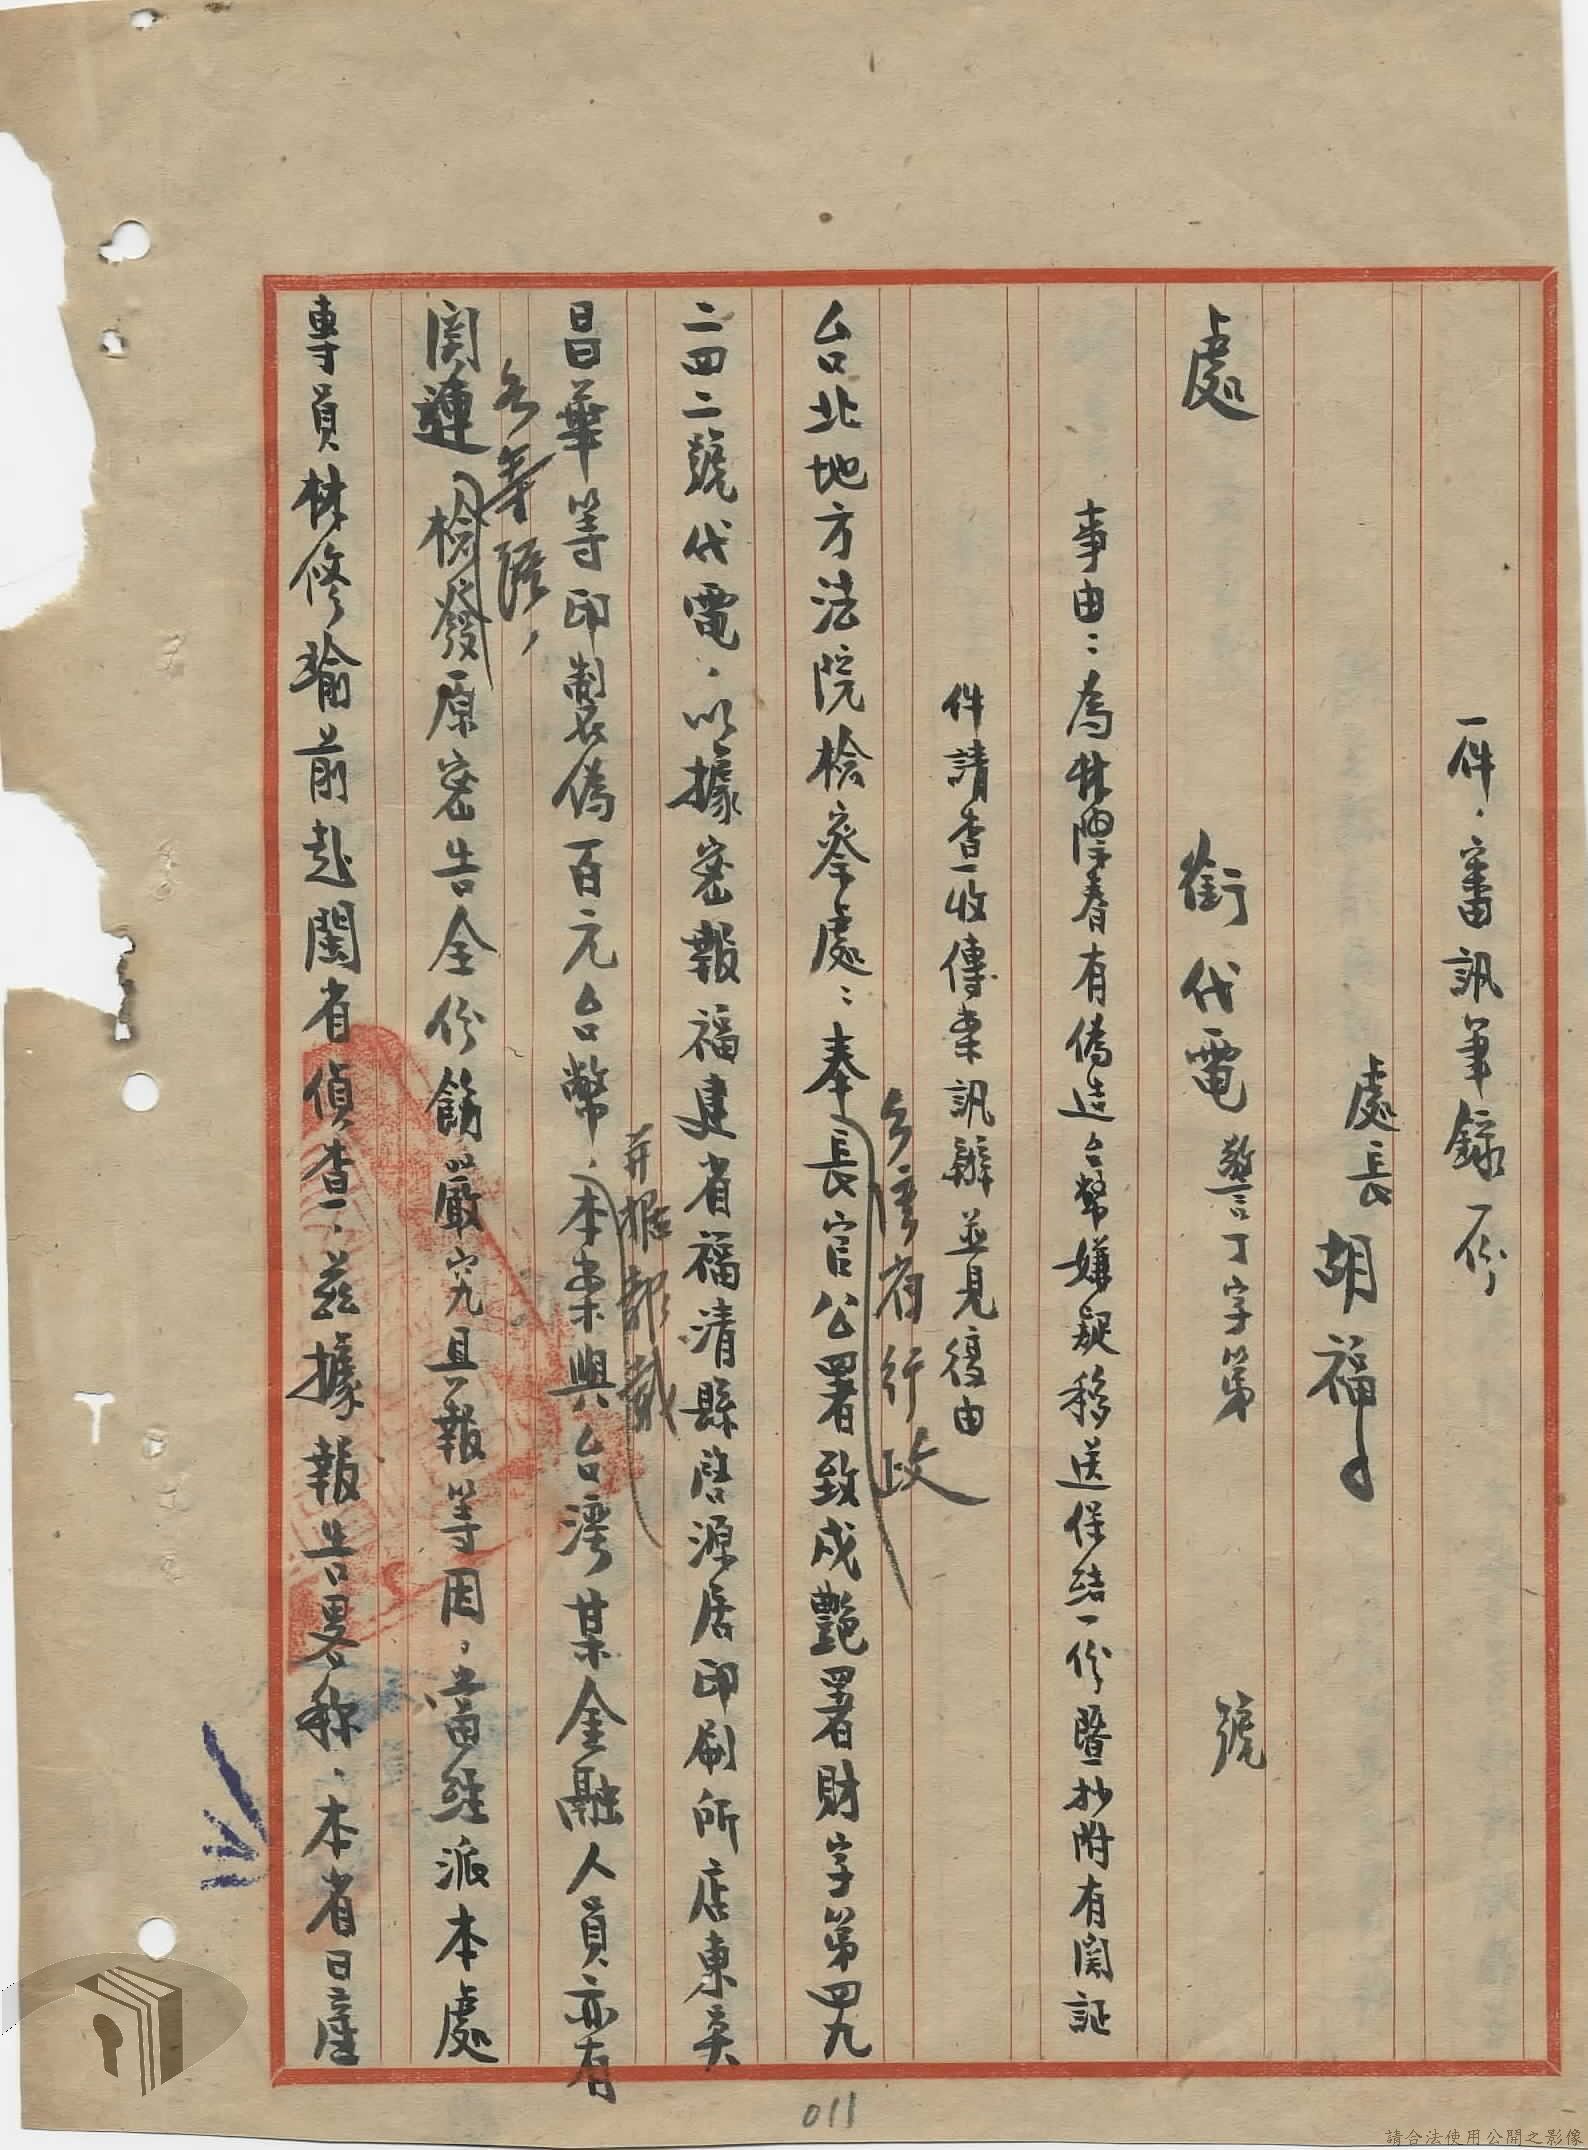 一件，審訊筆錄一份
處長 胡福
處 銜代電 警丁字第 號
事由：為林陞春有偽造台幣嫌疑移送保結一份暨抄附有関証
件請查收傳案訊辦並見復由
台北地方法院檢察處：奉長官公署致戌艷署財字第四九
台湾省行政
二四二號代電，以據密報福建省福清縣啓源居印刷所店東吳
昌華等印製偽百元台幣，本案與台湾某金融人員亦有
并据報載
関連，檢發原密告全份飭嚴究具報等因，當經派本處
各等語，
專員林修瑜前赴閩省偵查，茲據報告畧称，本省日產
011
請合法使用公開之影像